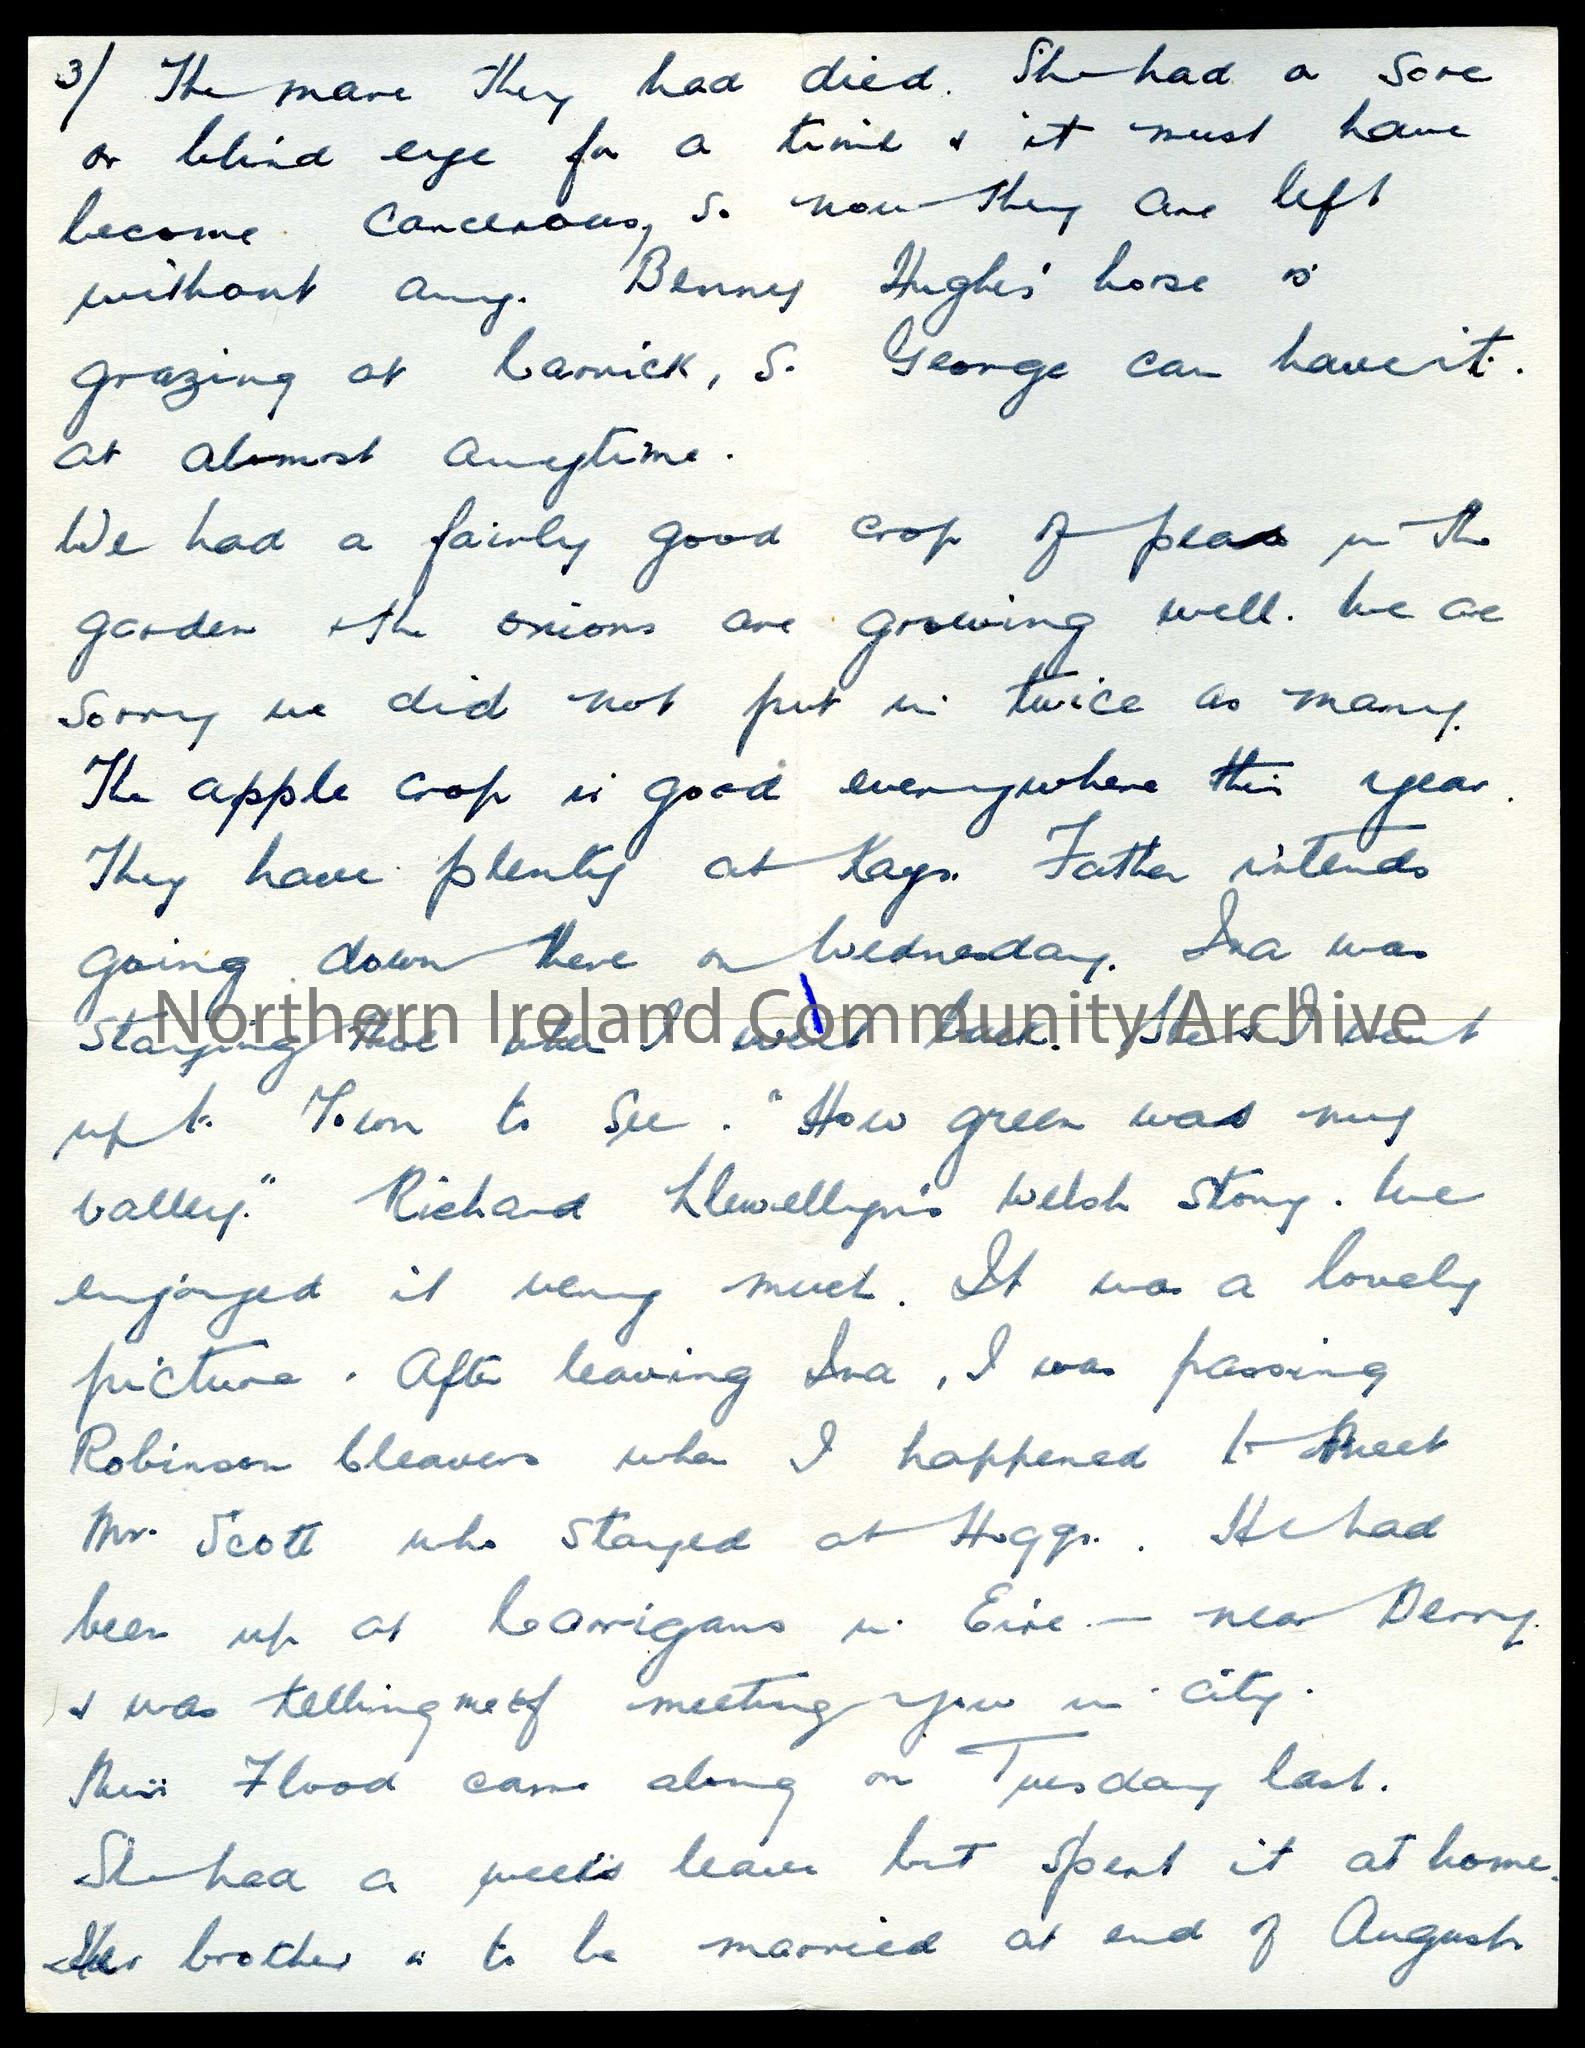 3/ The mare they had died. She had a sore
or blind eye for a time & it must have
become cancerous, so now they are left
without any. Benny Hughes' horse is
grazing at Carrick, so George can have it.
at almost anytime.
We had a fairly good crop of peas in the
garden & the onions are growing well. We are
sorry we did not put in twice as many.
The apple crop is good everywhere this year.
They have plenty at Kays. Father intends
going down there on Wednesday. Ina was
Northern Ireland Community Archive
staying there when I went back. She & I went
up to Town to see. "How green was my
valley." Richard Llewellyn's Welsh story. We
enjoyed it very much. It was a lovely
picture. After leaving Ina, I was passing
Robinson Cleavers when I happened to meet
Mr. Scott who stayed at Hoggs. He had
been up at Carrigans in Eire - near Derry.
& was telling me of meeting you in city.
Miss Flood came along on Tuesday last.
She had a week's leave but spent it at home.
Her brother is to be married at end of August